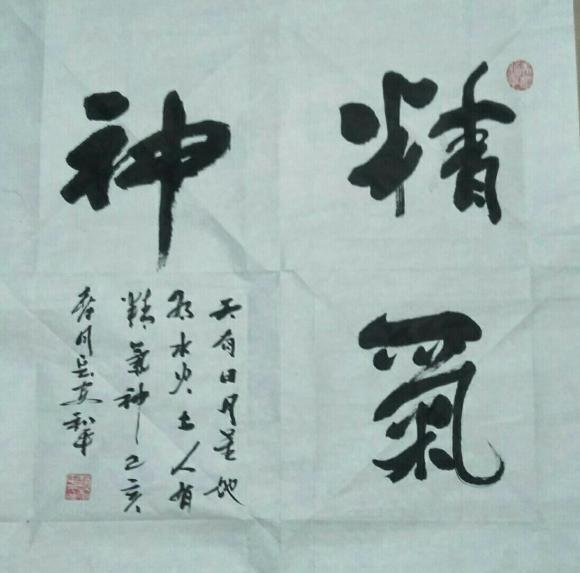 精氣
神
天有日月星地
有水火土人有
精氣神己亥
春月和平